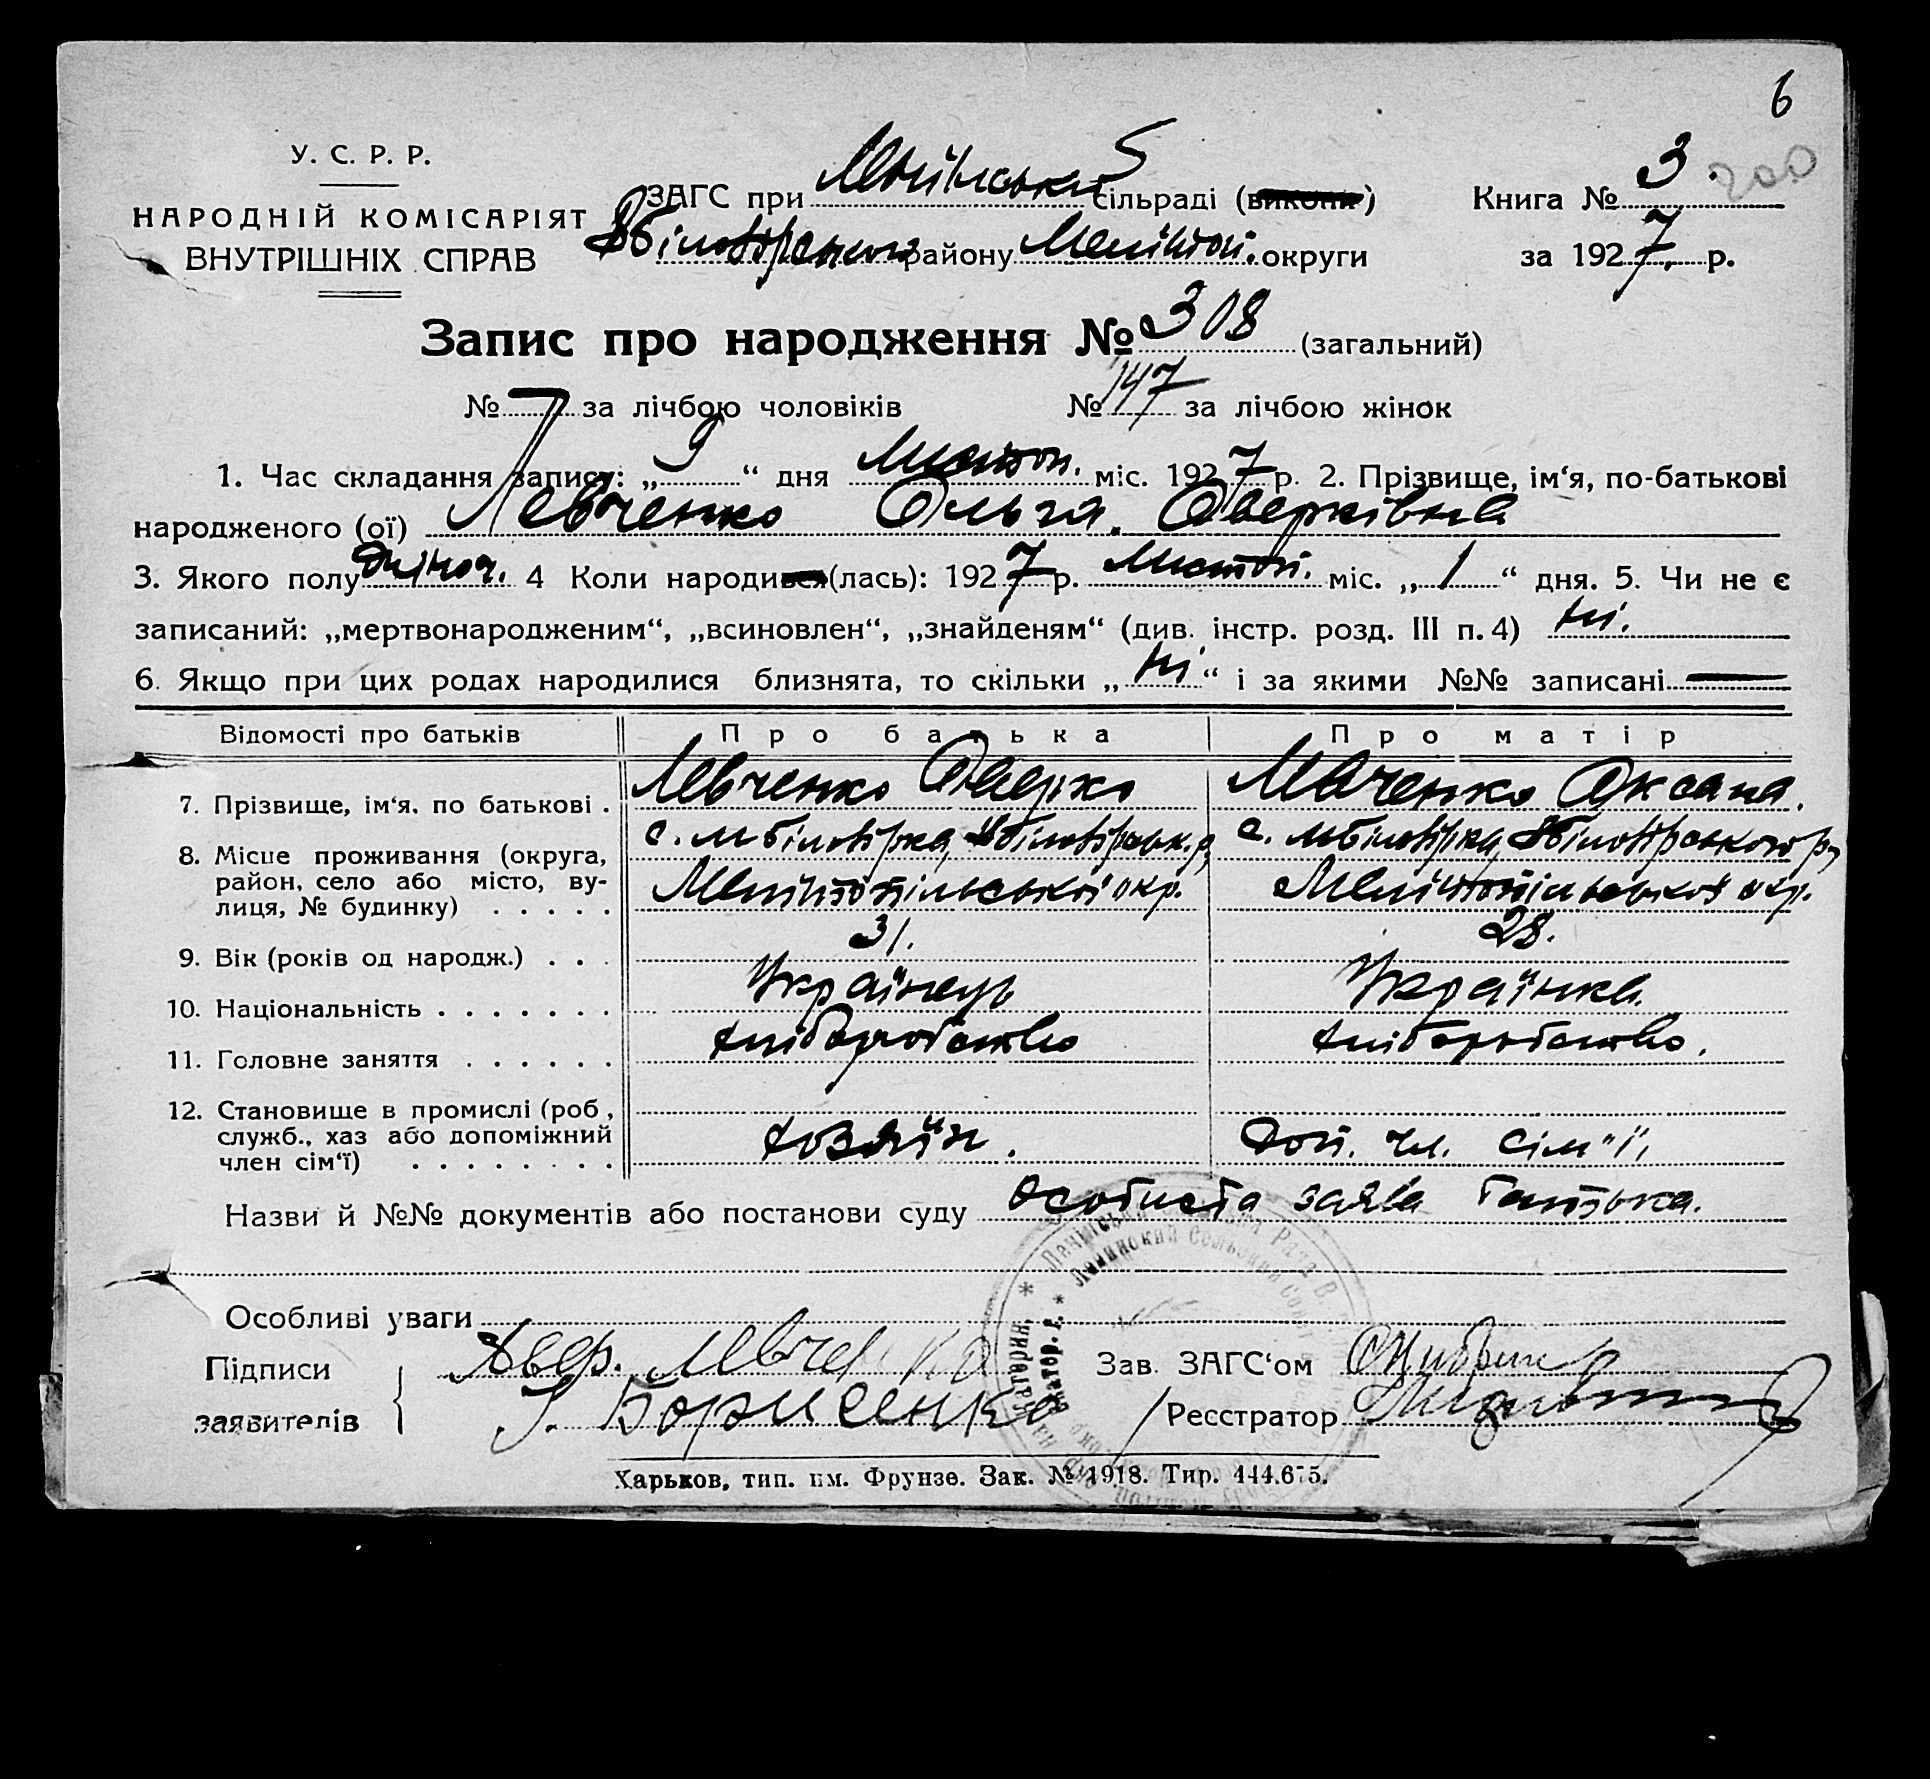 6
У. С. Р. Р.
НАРОДНІЙ КОМІСАРІЯТ
ВНУТРІШНІХ СПРАВ
ЗАГС при сільраді (виконк)
Вбіловірського району Меліттоп. округи
Книга № 3.
за 1927 р.
Запис про народження № 308 (загальний)
№ за лічбою чоловіків № 147 за лічбою жінок
1. Час складання запису: „ 9 “ дня Листоп. міс. 1927 р. 2. Прізвище, ім‘я, по-батькові
народженого (ої) Левченко Ольга. Оверківна
3. Якого полу жіноч. 4 Коли народився(лась): 1927 р. Листоп. міс. „ 1 “ дня. 5. Чи не є
записаний: „мертвонародженим“, „всиновлен“, „знайденям“ (див. інстр. розд. III п. 4) ні.
6. Якщо при цих родах народилися близнята, то скільки „ ні “ і за якими №№ записані
Відомості про батьків Про батька Про матір
7. Прізвище, ім‘я, по батькові . Левченко Оверко Левченко Оксана.
8. Місце проживання (округа, район, село або місто, вулиця, № будинку) . . . . .
с. Мбіловірка, Вбіловірськ. р,
Мелінтопільської окр.
с. Мбіловірка, Вбіловірського р,
Мелінтопільської окр.
9. Вік (років од народж.) . . . 31. 28.
10. Національність . . . . . . . Українець Українка.
11. Головне заняття . . . . . . хліборобство хліборобство.
12. Становище в промислі (роб, служб., хаз або допоміжний член сім‘ї) . . . . . . . .
хозяїн.
доп. чл. сім"ї.
Назви й №№ документів або постанови суду Особиста заява батька.
Особливі уваги
Підписи
заявителів
Авер. Левченко
Г. Борисенко
Зав. ЗАГС‘ом
Реєстратор
Харьков, тип. им. Фрунзе. Зак. № 1918. Тир. 444.675.